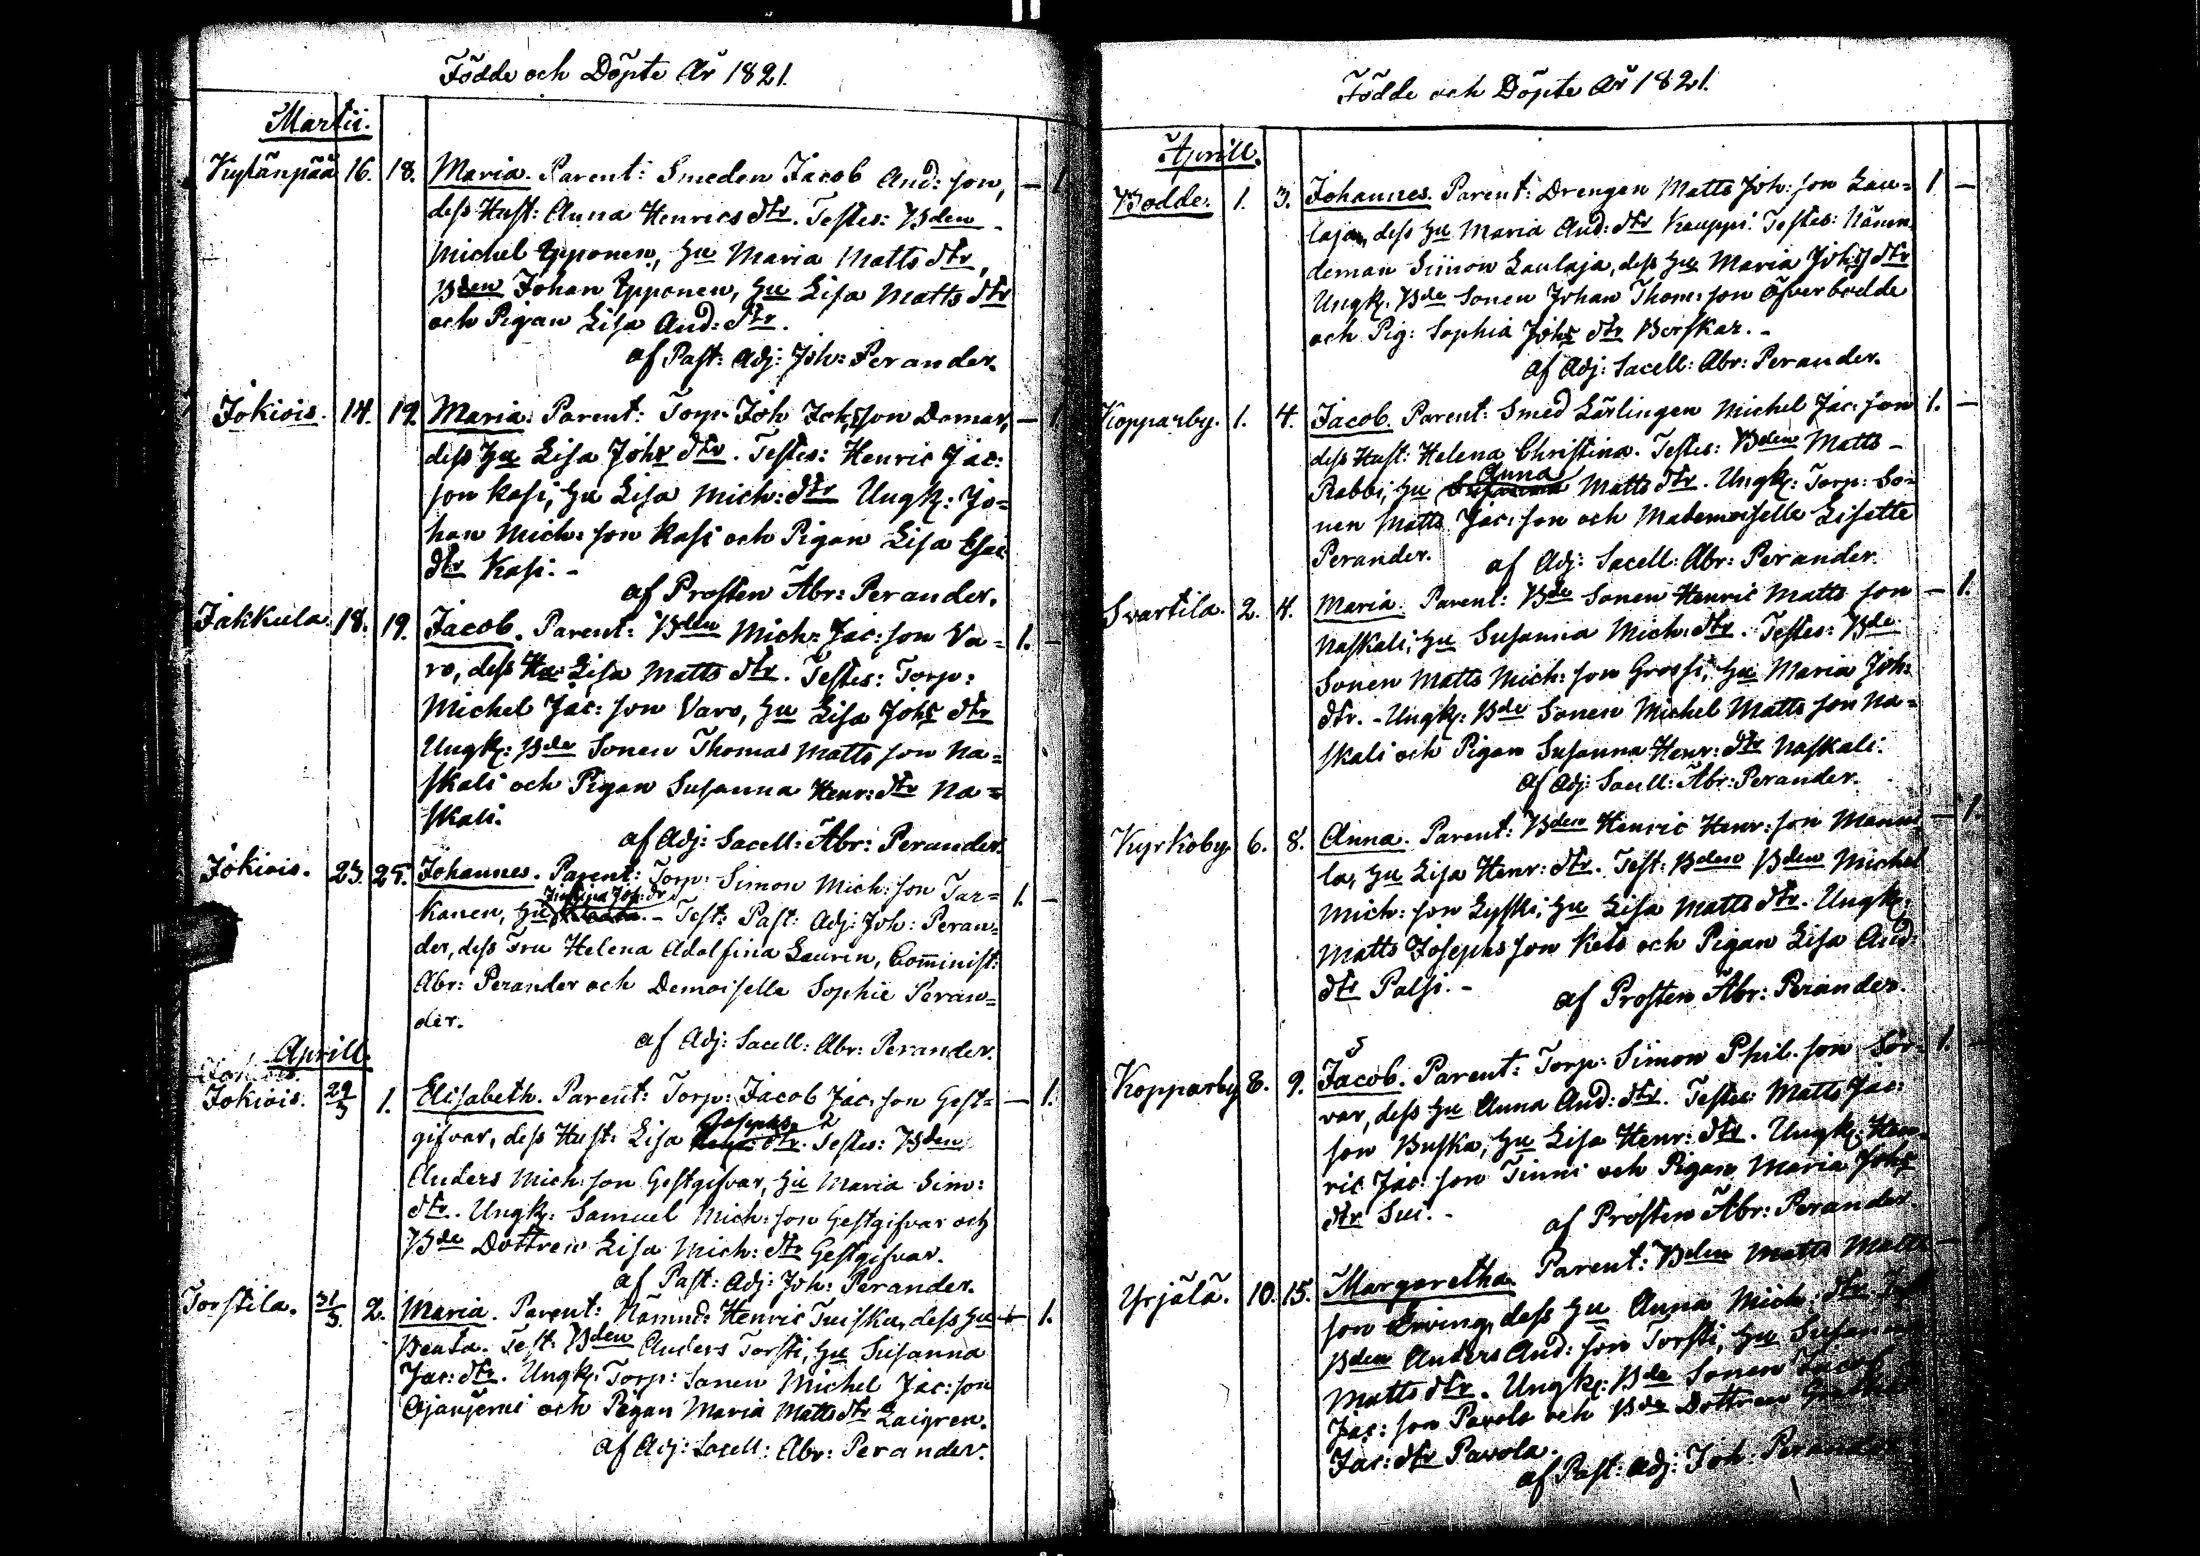 Födde och Döpte År 1821.
Martii.
Kylänpää 16. 18. Maria. Parent: Smeden Jacob And: son, — 1.
dess Hust: Anna Henrics dtr. Testes: Bden
Michel Epponen, Hu Maria Matts dtr,
Bden Johan Epponen, Hu Lisa Matts dtr
och Pigan Lisa And: dtr.
af Past: Adj: Joh: Perander.
Jokiois. 14. 19. Maria. Parent: Torp: Joh Johs son Domar, — 1.
dess Hu Lisa Johs dtr. Testes: Henric Jac:
son Kasi, Hu Lisa Mich: dtr Ungk: Jo=
han Mich: son Kasi och Pigan Lisa Esai
dtr Kasi. -
af Prosten Abr: Perander.
Jakkula 18. 19. Jacob. Parent: Bden Mich: Jac: son Va= 1. —
ro, dess Hu: Lisa Matts dtr. Testes: Torp:
Michel Jac: son Varo, Hu Lisa Johs dtr
Ungk: Bde Sonen Thomas Matts son Na=
skali och Pigan Susanna Henr: dtr Na=
skali.
af Adj: Sacell: Abr: Perander.
Jokiois. 23. 25. Johannes. Parent: Torp: Simon Mich: son Tur= 1. —
kanen, Hu Joh: dr. - Test: Past: Adj: Joh: Peran=
der, dess Fru Helena Adolfina Laurin, Comminist:
Abr: Perander och Demoiselle Sophie Peran=
der.
af Adj: Sacell: Abr: Perander.
Aprill.
Jokiois. 29/3 1. Elisabeth. Parent: Torp: Jacob Jac: son Gest= — 1.
gifvar, dess Hust: Lisa Josephs dtr. Testes: Bden
Anders Mich: son Gestgifvar, Hu Maria Sim:
dtr. Ungk: Samuel Mich: son Gestgifvar och
Bde Dottren Lisa Mich: dtr Gestgifvar.
af Past: Adj: Joh: Perander.
Torstila. 31/3. 2. Maria. Parent: Nämnd: Henric Tuisku, dess Hu — 1.
Beata. Test: Bden Anders Torsti, Hu Susanna
Jac: dtr. Ungk: Torp: Sonen Michel Jac: son
och Pigan Maria Matts dtr Laigren.
af Adj: Sacell: Abr: Perander.
Födde och Döpte År 1821.
Aprill.
Bodde. 1. 3. Johannes. Parent: Drengen Matts Joh: son Lau= 1 —
laja, dess Hu Maria And: dtr Kauppi. Testes: Nämn
deman Simon Laulaja, dess Hu Maria Johs dtr
Ungk: Bde Sonen Johan Thom: son Öfverbodde
och Pig: Sophia Johs dtr Borskar. -
af Adj: Sacell: Abr: Perander.
Kopparby. 1. 4. Jacob. Parent: Smed Lärlingen Michel Jac: son 1. —
dess Hust: Helena Christina. Testes: Bden Matts
Rabbi, Hu Anna Matts dtr. Ungk: Torp: So=
nen Matts Jac: son och Mademoiselle Lisette
Perander. af Adj: Sacell: Abr: Perander.
Svartila. 2. 4. Maria. Parent: Bde Sonen Henric Matts son — 1.
Naskali, Hu Susanna Mich: dtr. Testes: Bde
Sonen Matts Mich: son Grossi, Hu Maria Joh:
dtr. - Ungk: Bde Sonen Michel Matts son Na=
skali och Pigan Susanna Henr: dtr Naskali.
af Adj: Sacell: Abr: Perander.
Kyrkoby. 6. 8. Anna. Parent: Bden Henric Henr: son Manni — 1.
la, Hu Lisa Henr: dtr. Test: Bden Bden Michel
Mich: son Lyski, Hu Lisa Matts dtr. Ungk:
Matts Josephs son Keto och Pigan Lisa And:
dtr Palsi. - af Prosten Abr: Perander.
Kopparby 8. 9. Jacob. Parent: Torp: Simon Phil: son Sör= 1. —
var, dess Hu Anna And: dtr. Testes: Matts Jac:
son Buska, Hu Lisa Henr: dtr. Ungk: Hen=
ric Jac: son Tinni och Pigan Maria Johs
dtr Sui. - af Prosten Abr: Perander.
Yrjälä. 10. 15. Margaretha. Parent: Bden Matts Matts —
son Erving, dess Hu Anna Mich: dtr.
Bden Anders And: son Torsti, Hu Susanna
Matts dtr. Ungk: Bde Sonen Jacob
Jac: son Pavola och Bde Dottren
Jac: dtr Pavola.
af Past: Adj: Joh: Perander